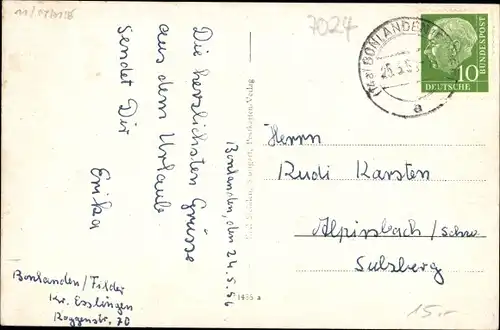 7024
BONLANDEN
10
DEUTSCHE
BUNDESPOST
a
Bonlanden, den 24.5.56
Die herzlichsten Grüsse
aus dem Urlaub
sendet Dir
Erika
Bonlanden/Filder
Kr. Esslingen
Roggenstr. 70
Herrn
Rudi Karsten
Alpirsbach/Schw.
Sulzberg
15.-